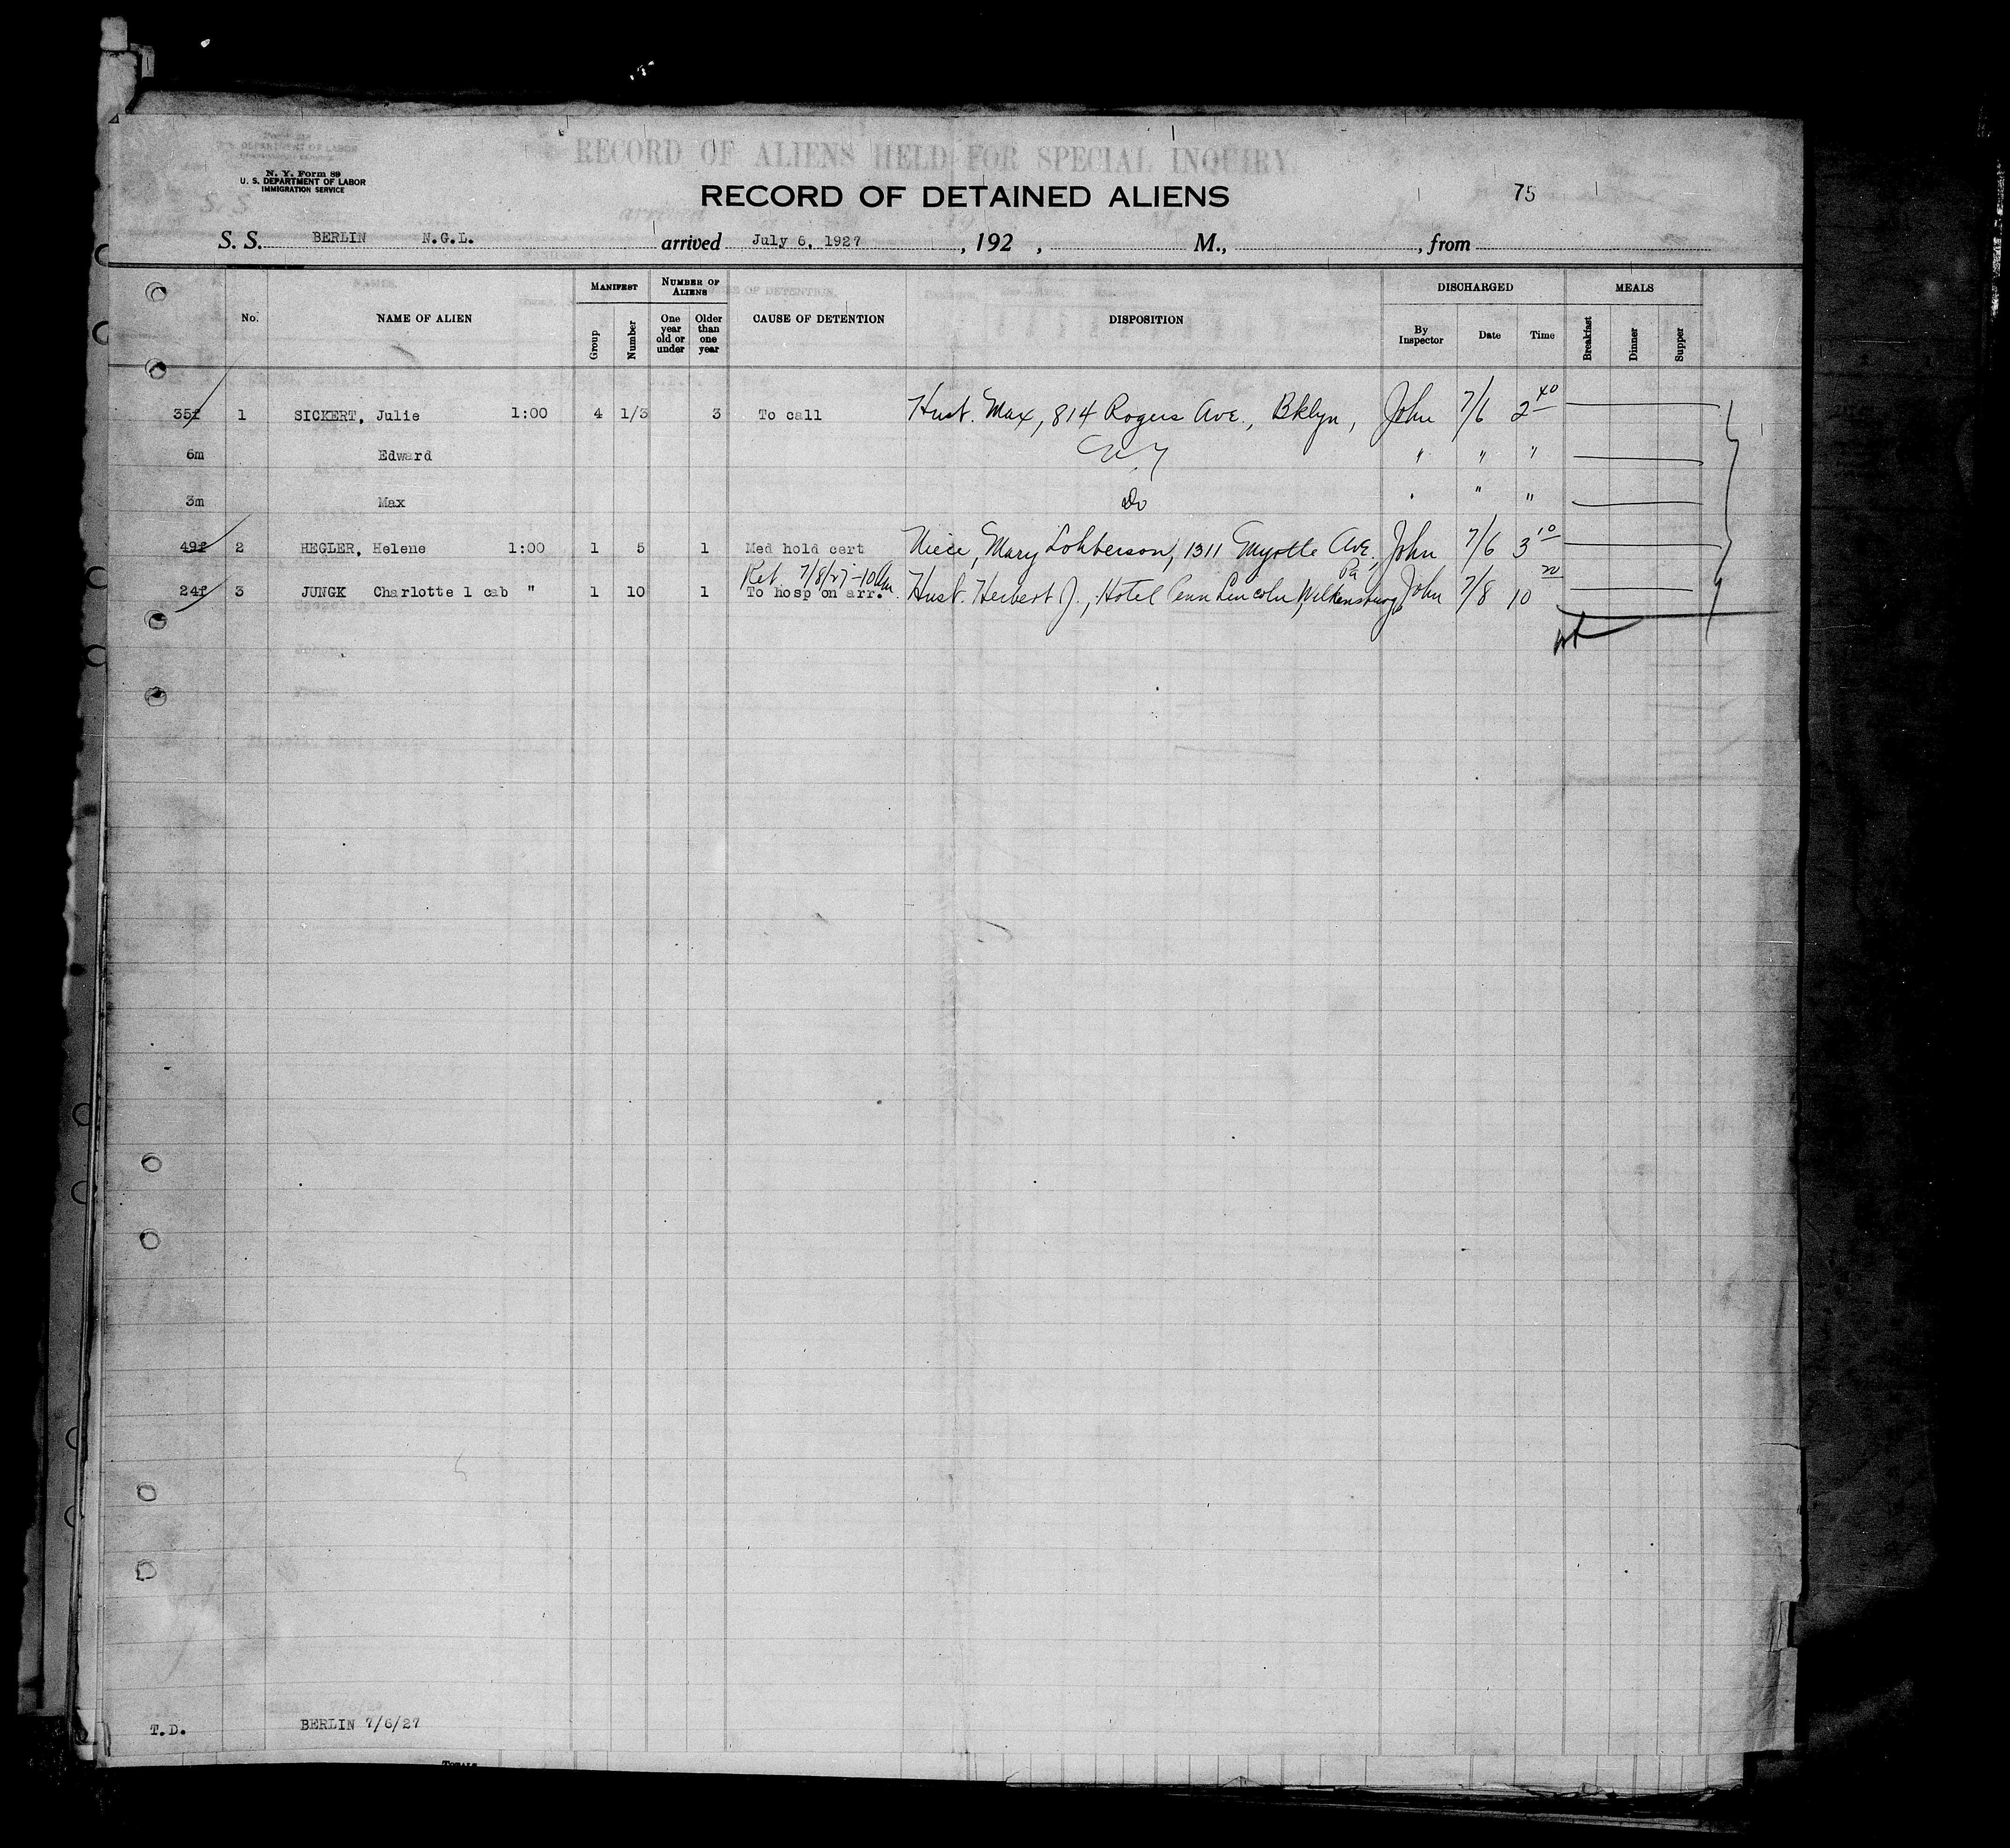 RECORD OF ALIENS HELD FOR SPECIAL INQUIRY.
N. Y. Form 89
U. S. DEPARTMENT OF LABOR
IMMIGRATION SERVICE
RECORD OF DETAINED ALIENS 75
S. S. BERLIN N.G.L. arrived July 6, 1927 , 192 , M., , from
No. NAME OF ALIEN MANIFEST Group Number NUMBER OF ALIENS One year old or under Older than one year CAUSE OF DETENTION DISPOSITION DISCHARGED By Inspector Date Time MEALS Breakfast Dinner Supper
35f 1 SICKERT, Julie 1:00 4 1/3 3 To call Husb. Max, 814 Rogers Ave., Bklyn, John 7/6 2 40
6m Edward N Y " " "
3m Max Do " " "
49f 2 HEGLER, Helene 1:00 1 5 1 Med hold cert Niece, Mary 1311 Myrtle Ave, John 7/6 3 10
Ret. 7/8/27-10 Am. Pa
24f 3 JUNGK Charlotte 1 cab " 1 10 1 To hosp on arr. Husb. Herbert J., Hotel Penn Lincoln, Wilkensburg John 7/8 10 20
T.D. BERLIN 7/6/27
TOTALS